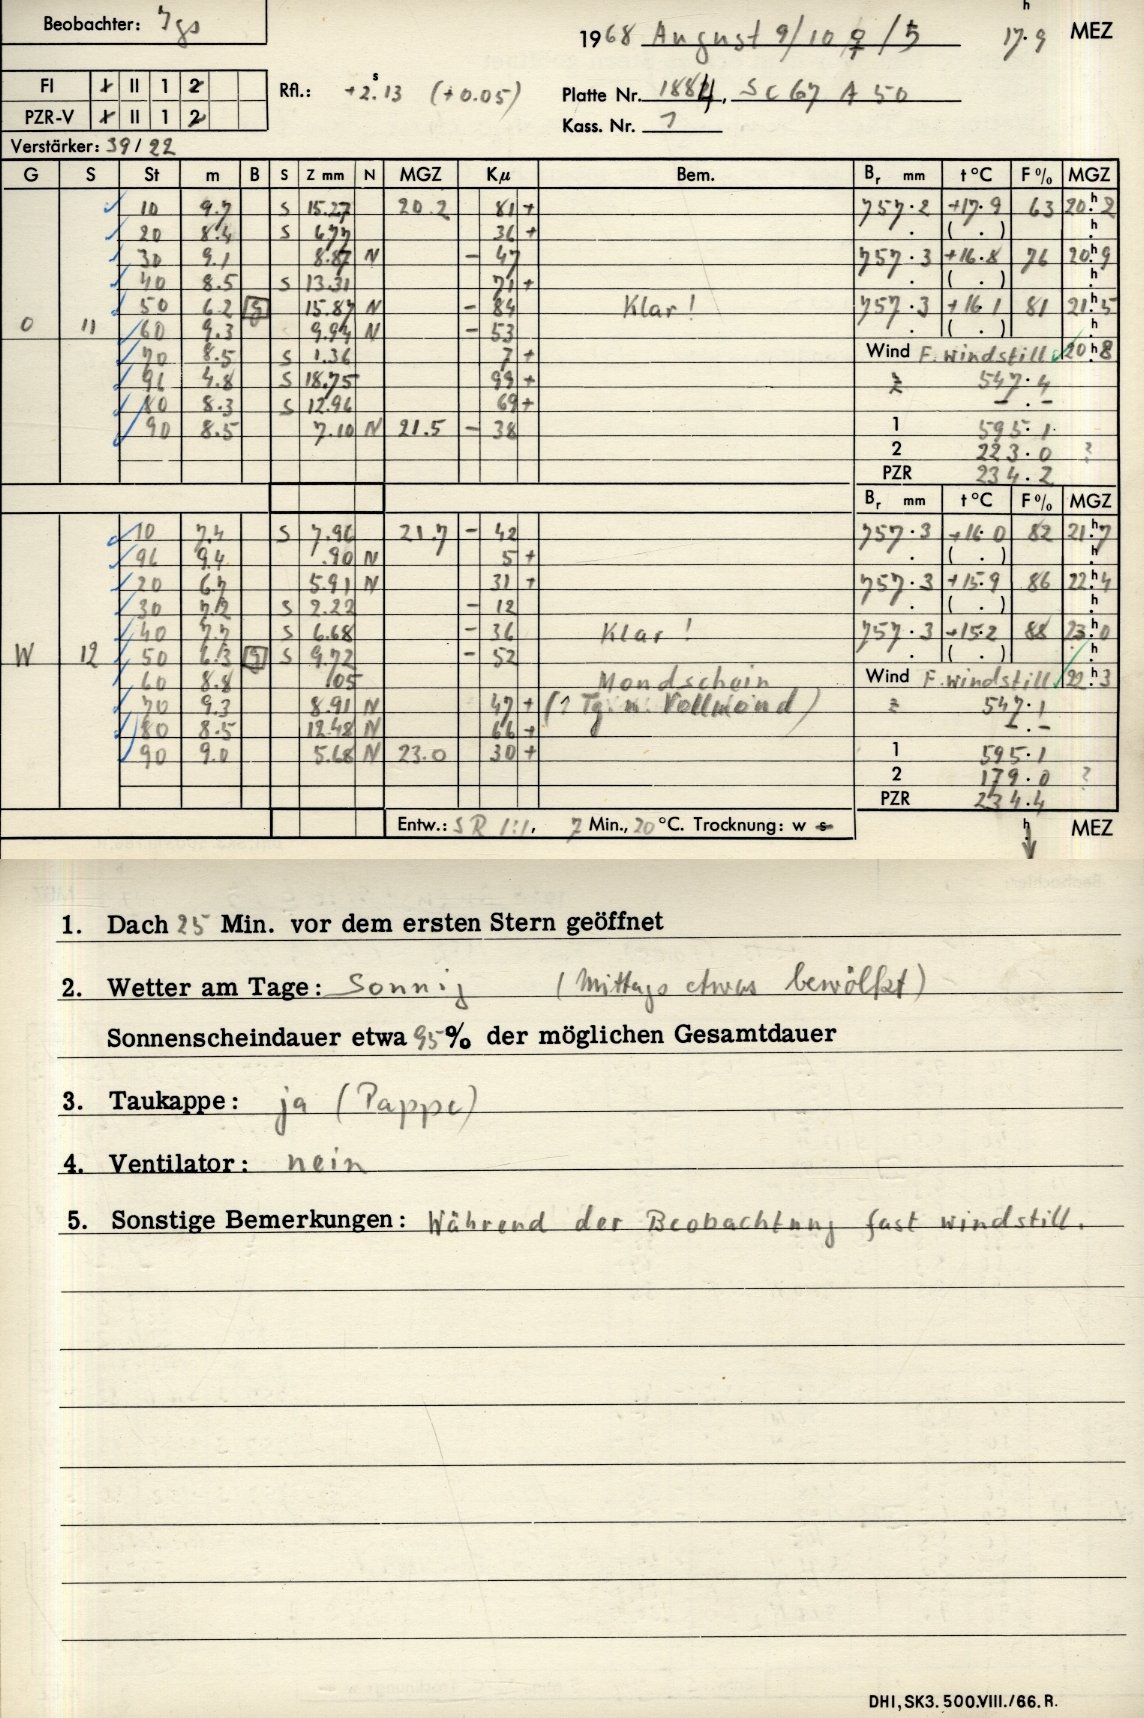 Beobachter: Jgs
1968 August 9/10 ♀/♄ 17.9 h MEZ
FI I II 1 2
PZR-V I II 1 2
Rfl.: +2.13 s (+0.05)
Platte Nr. 1884, Sc 67 A 50
Kass. Nr. 1
Verstärker: 39/22
G S St m B S Z mm N MGZ Kμ Bem. Br mm t°C F% MGZ
10 9.7 S 15.27 20.2 81 + 757.2 +17.9 63 20.h2
20 8.4 S 6.77 36 + . ( . ) h
30 9.1 8.87 N - 47 757.3 +16.8 76 20.h9
40 8.5 S 13.31 71 + . ( . ) h
50 6.2 S 15.87 N - 84 Klar! 757.3 +16.1 81 21.h5
O 11 60 9.3 9.94 N - 53 . ( . ) h
70 8.5 S 1.36 7 + Wind F. windstill 20h8
96 4.8 S 18.75 99 + z 547.4
80 8.3 S 12.96 69 + - . -
90 8.5 7.10 N 21.5 - 38 1 595.1
2 223.0 ?
PZR 234.2
Br mm t°C F% MGZ
10 7.4 S 7.96 21.7 - 42 757.3 +16.0 82 21.h7
96 9.4 .90 N 5 + . ( . ) h
20 6.7 5.91 N 31 + 757.3 +15.9 86 22.h4
30 7.2 S 2.22 - 12 . ( . ) h
40 7.7 S 6.68 - 36 Klar! 757.3 +15.2 88 23.h0
W 12 50 6.3 S 9.72 - 52 . ( . ) h
60 8.8 .05 Mondschein Wind F. windstill 22.h3
70 9.3 8.91 N 47 + (1 Tg. n. Vollmond) z 547.1
80 8.5 12.48 N 66 + - . -
90 9.0 5.68 N 23.0 30 + 1 595.1
2 179.0 ?
PZR 234.4
Entw.: SR 1:1, 7 Min., 20 °C. Trocknung: w s h MEZ
1. Dach 25 Min. vor dem ersten Stern geöffnet
2. Wetter am Tage: Sonnig (Mittags etwas bewölkt)
Sonnenscheindauer etwa 95% der möglichen Gesamtdauer
3. Taukappe: ja (Pappe)
4. Ventilator: nein
5. Sonstige Bemerkungen: Während der Beobachtung fast windstill.
DHI, SK3. 500.VIII./66. R.